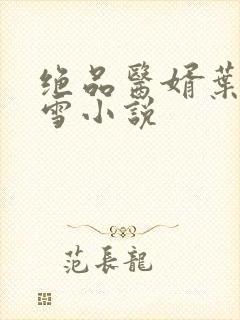 绝品醫婿葉
雪小説
范長龍